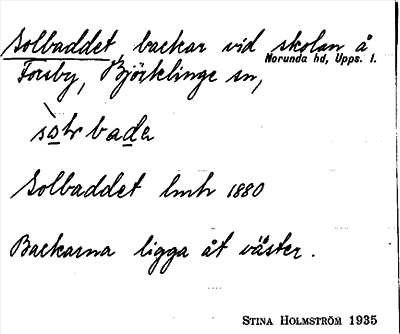 Solbaddet, backar vid skolan å
Norunda hd, Upps. l.
Forsby, Björklinge sn,
Solbaddet lmtr 1880
Backarna ligga åt väster.
STINA HOLMSTRÖM 1935